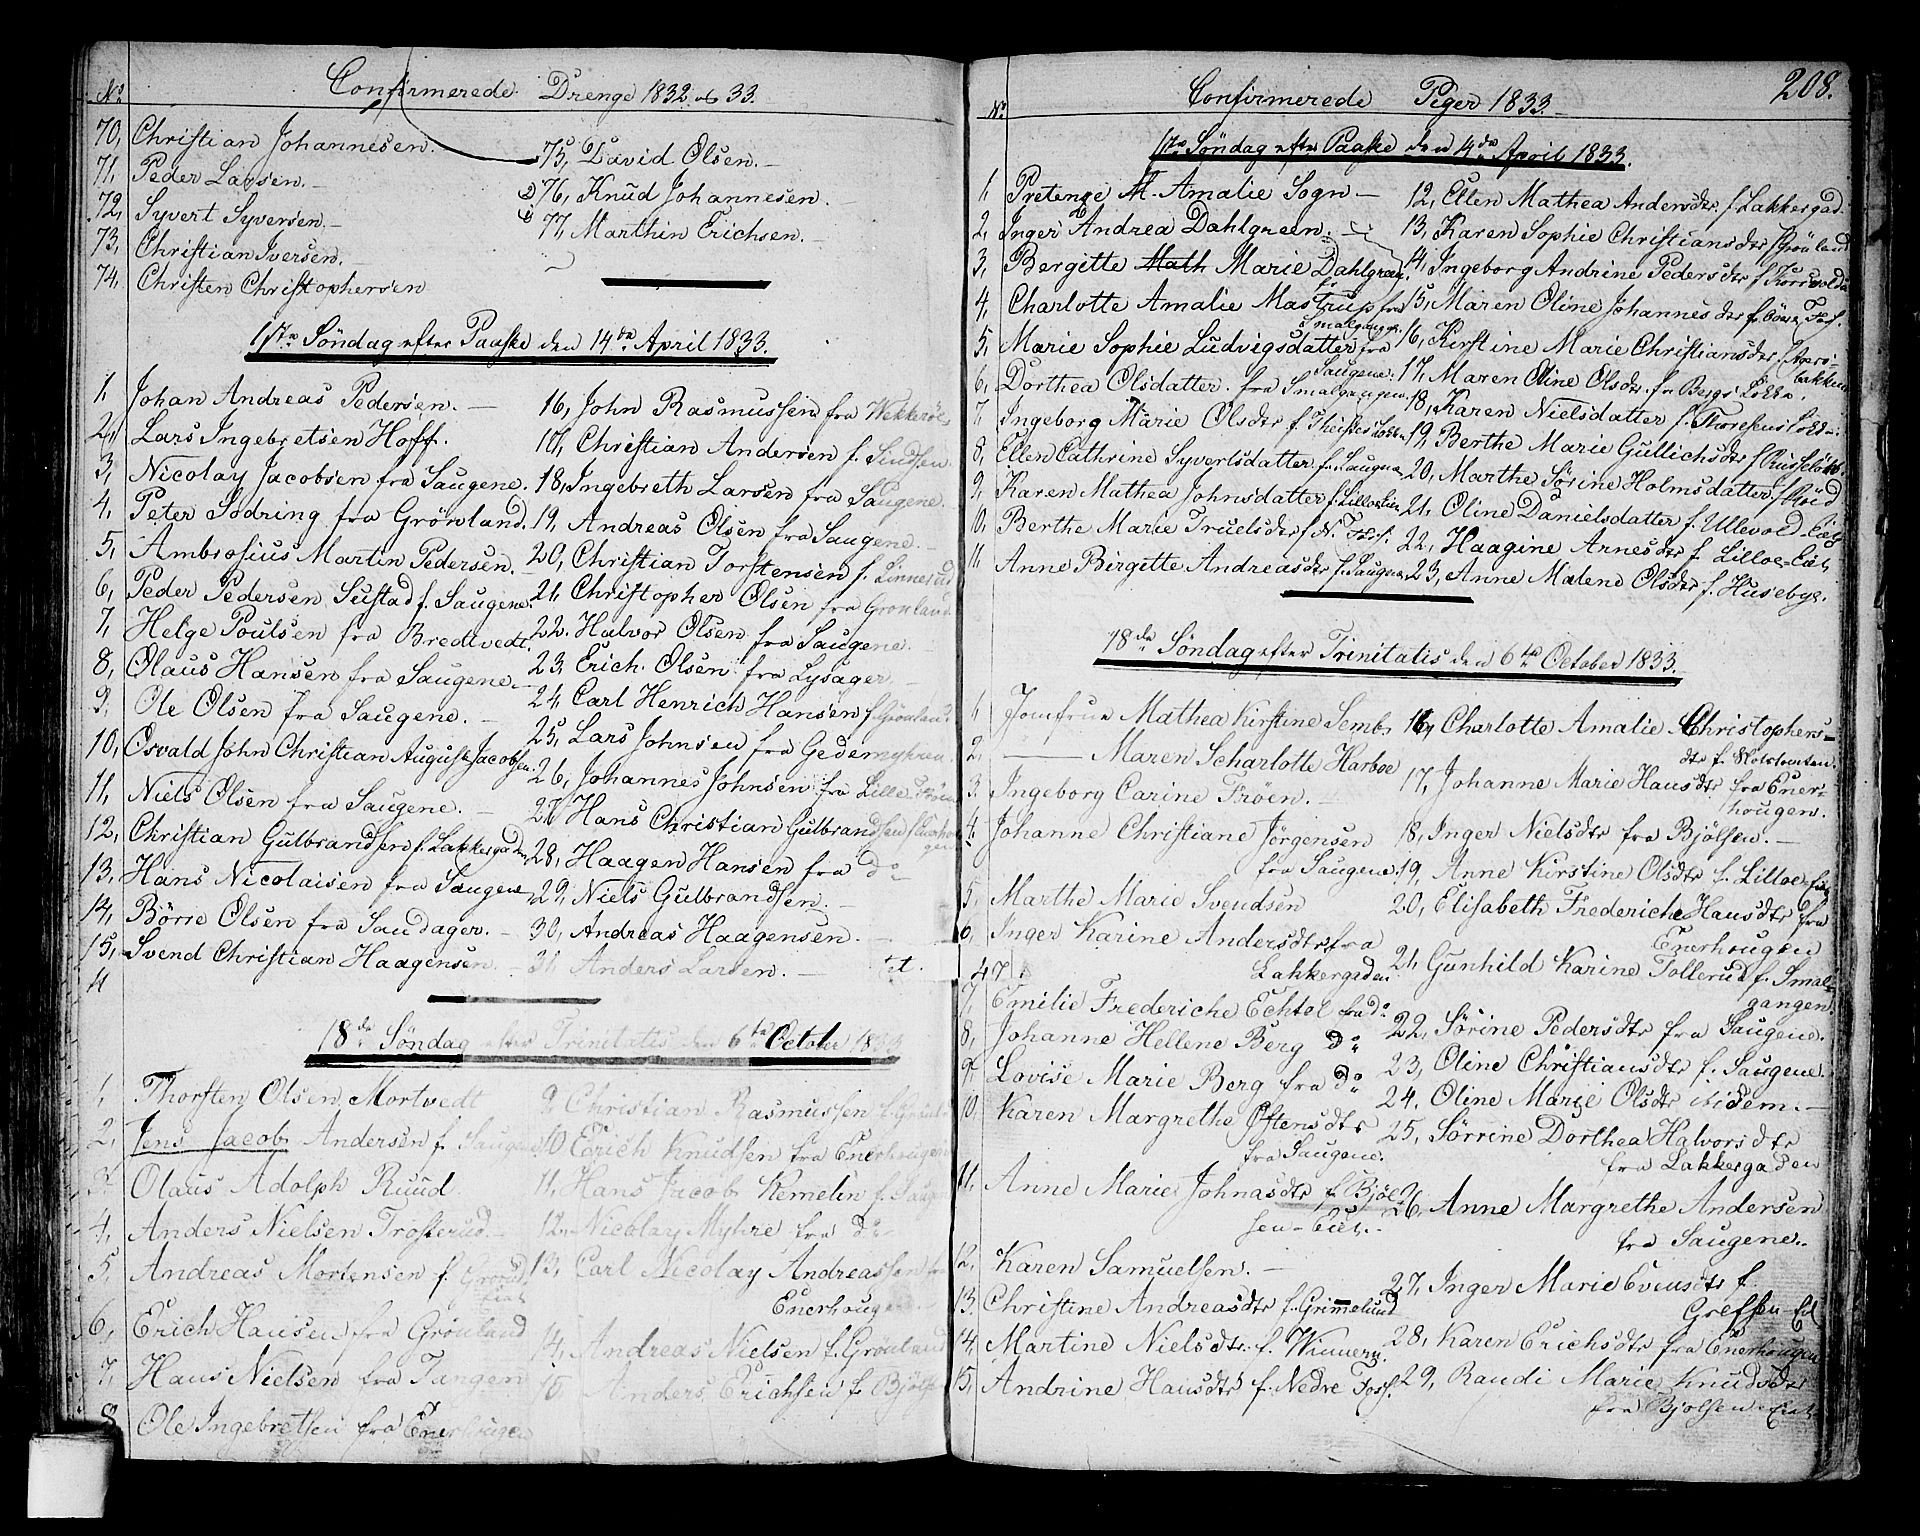 No. Confirmerede Drenge 1832 og 33.
70, Christian Johannesen.
71, Peder Larsen.
72, Syvert Syversen.
73, Christian Iversen.
74, Christen Christophersen
75, David Olsen.
76, Knud Johannesen.
77, Marthin Erichsen.
1ste Søndag efter Paaske den 14de April 1833.
1, Johan Andreas Pedersen.
2, Lars Ingebretsen Hoff.
3, Nicolay Jacobsen fra Saugene.
4, Peter Sodring fra Grønland.
5, Ambrosius Martin Pedersen.
6, Peder Pedersen Sustad f. Saugene.
7, Helge Poulsen fra Bredtvedt.
8, Olaus Hansen fra Saugene.
9, Ole Olsen fra Saugene.
10, Osvald John Christian August Jacobsen.
11, Niels Olsen fra Saugene.
12, Christian Gulbrandsen f. Lakkergaden
13, Hans Nicolaisen fra Saugene
14, Børre Olsen fra Sandager.
15, Svend Christian Haagensen.
16, John Rasmussen fra
17, Christian Andersen f. Sindsen.
18, Ingebreth Larsen fra Saugene.
19, Andreas Olsen fra Saugene.
20, Christian Torstensen f. Linnerud
21, Christopher Olsen fra Grønland.
22. Halvor Olsen fra Saugene.
23, Erich Olsen fra Lysager.
24, Carl Henrich Hansen f. Grønland.
25, Lars Johnsen fra Gedemyhren
26, Johannes Johnsen fra Lille
27, Hans Christian Gulbrandsen f. Enerhougen
28, Haagen Hansen fra do
29, Niels Gulbrandsen.
30, Andreas Haagensen.
31, Anders Larsen.
18de Søndag efter Trinitatis den 6te October 1833
1, Thorsten Olsen Mortvedt
2, Jens Jacob Andersen f. Saugene
3, Olaus Adolph Ruud.
4, Anders Nielsen Trosterud.
5, Andreas Mortensen f. Grønl.
Eiet
6, Erich Hansen fra Grønland
7, Hans Nielsen fra Tangen
8, Ole Ingebretsen fra Enerhougen
9, Christian Rasmussen f. Grønl.
10 Erich Knudsen fra Enerhougen
11, Hans Jacob Kemelin f. Saugene
12. Nicolay Myhre fra do
13, Carl Nicolay Andreassen fra
Enerhougen.
14, Andreas Nielsen f. Grønland
15, Anders Erichsen f. Bjølsen
208.
No. Confirmerede Piger 1833.
1ste Søndag efter Paaske den 14de April 1833.
1, Pretenze M. Amalie Sogn
2, Inger Andrea Dahlgreen.
3, Bergitte Math Marie Dahlgreen.
4, Charlotte Amalie Mastrup fra
Smalgangen
5, Marie Sophie Ludvigsdatter fra
Saugene.
6, Dorthea Olsdatter. fra Smalgangen.
7, Ingeborg Marie Olsdtr f. Løkken
8, Ellen Cathrine Syvertsdatter f. Saugene
9, Karen Mathea Johnsdatter f. Lilloe Eien
10, Berthe Marie Truelsdtr f. N. Fos.
11, Anne Birgitte Andreasdtr f. Saugene
12, Ellen Mathea Andersdtr. f. Lakkergad.
13, Karen Sophie Christiansdtr f. Grønland
14, Ingeborg Andrine Pedersdtr f.
15, Maren Oline Johannesdtr f. øvre Fos.
16, Kirstine Marie Christiansdtr. f.
bakken
17, Maren Oline Olsdtr. fra Bergs Løkke.
18, Karen Nielsdatter f.
19 Berthe Marie Gullichsdtr f.
20, Marthe Sørine Holmsdatter f.
21, Oline Danielsdatter f. Ullevold Eiet
22, Haagine Arnesdtr f. Lilloe-Eiet
23, Anne Malene Olsdtr f. Husebye.
18de Søndag efter Trinitatis den 6te October 1833.
1 Jomfrue Mathea Kirstine Semb.
2, —— Maren Scharlotte Harboe
3, Ingeborg Carine Frøen.
4, Johanne Christiane Jørgensen
fra Saugene.
5, Marthe Marie Svendsen
6, Inger Karine Andersdtr fra
Lakkergaden
7, Emilie Frederiche Echtol fra do
8, Johanne Hellene Berg do
9, Lovise Marie Berg fra do
10, Karen Margrethe Øftensdtr
fra Saugene.
11, Anne Marie Johnasdtr f. Bjøl-
sen-Eiet.
12, Karen Samuelsen.
13, Christine Andreasdtr f. Grimelund
14, Martine Nielsdtr. f. Winnern.
15, Andrine Hansdtr f. Nedre Foss.
16, Charlotte Amalie Christophers-
dtr f.
17, Johanne Marie Hansdtr fra Ener-
hougen.
18, Inger Nielsdtr fra Bjølsen.
19, Anne Kirstine Olsdtr f. Lilloe-Eiet
20, Elisabeth Frederiche Hansdtr fra
Enerhougen
21, Gunhild Karine Tollerud f. Smal-
gangen
22, Sørine Pedersdtr fra Saugene.
23, Oline Christiansdtr f. Saugene.
24. Oline Marie Olsdtr ibidem.
25, Sørrine Dorthea Halvorsdtr
fra Lakkergaden
26, Anne Margrethe Andersen
fra Saugene.
27, Inger Marie Evensdtr f.
Grefsen Eiet
28, Karen Erichsdtr fra Enerhougen
29, Randi Marie Knudsdtr
fra Bjølsen-Eiet